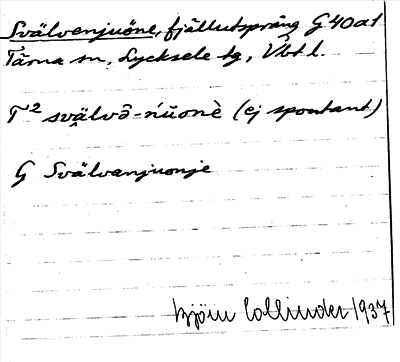 Svälvenjuöne, fjällutsprång G40a1
Tärna sn, Lycksele tg, Vbt l.
T² svälvô-ńŭonè (ej spontant)
G Svälvanjuonje
Björn Collinder 1937